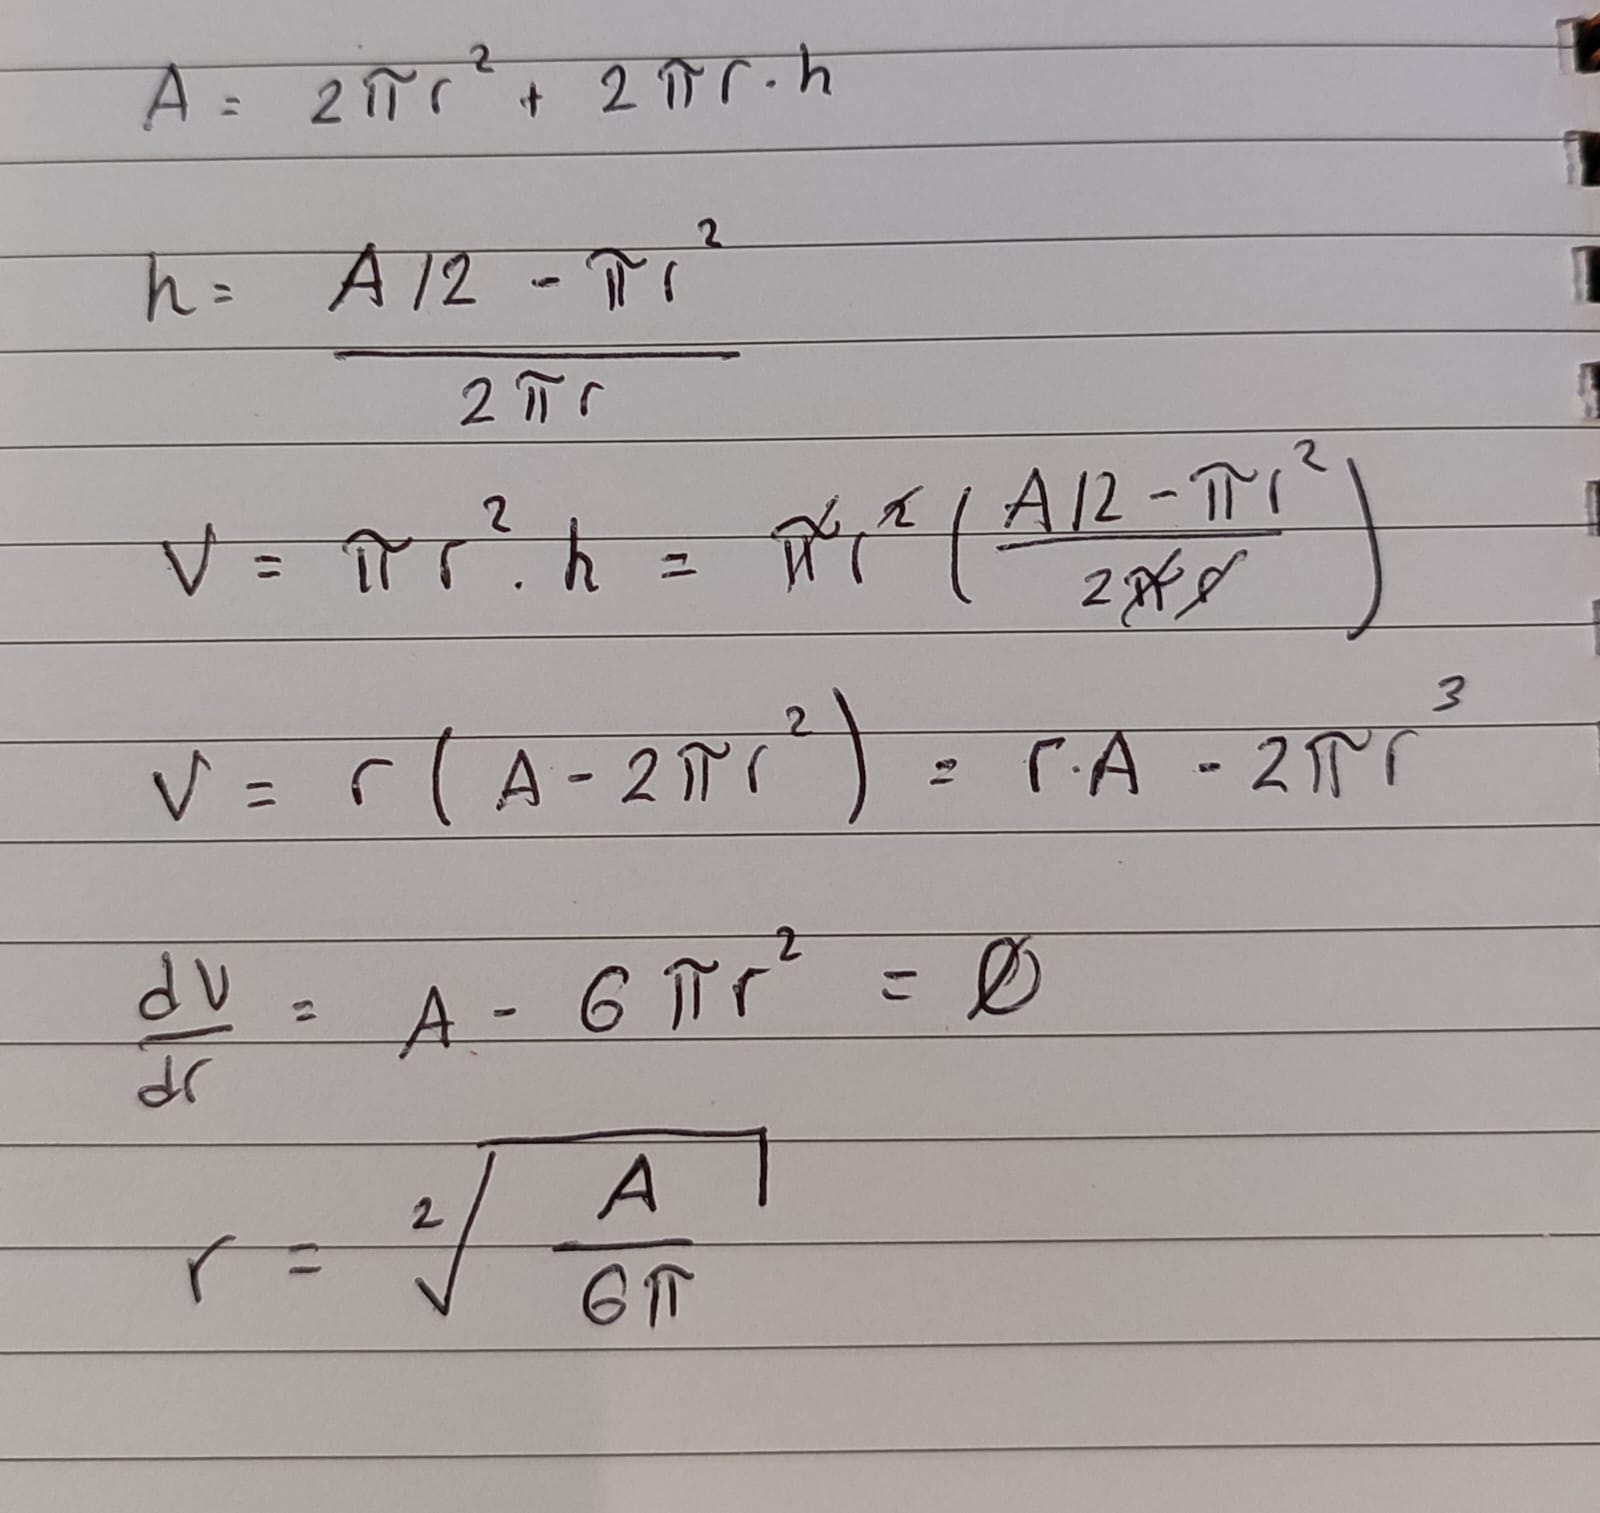 A = 2πr² + 2πr·h
h = (A/2 - πr²) / (2πr)
V = πr²·h = πr² ( (A/2 - πr²) / (2πr) )
V = r(A - 2πr²) = r·A - 2πr³
dV/dr = A - 6πr² = 0
r = ²√(A / 6π)